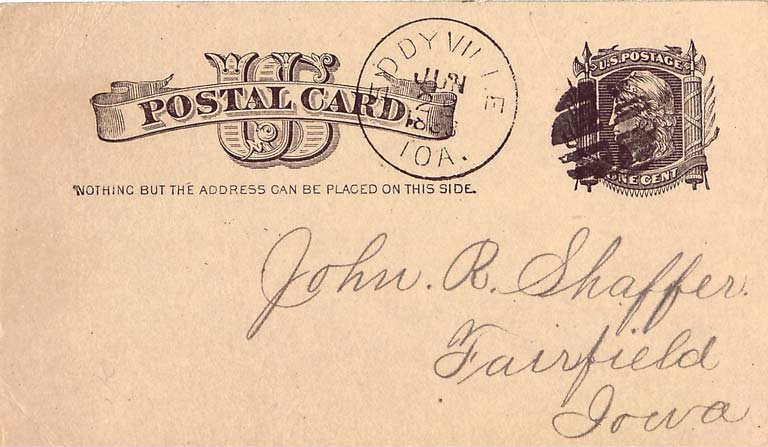 US
POSTAL CARD
EDDYVILLE
JUN
IOA.
U.S. POSTAGE
ONE CENT
NOTHING BUT THE ADDRESS CAN BE PLACED ON THIS SIDE.
John. R. Shaffer.
Fairfield
Iowa